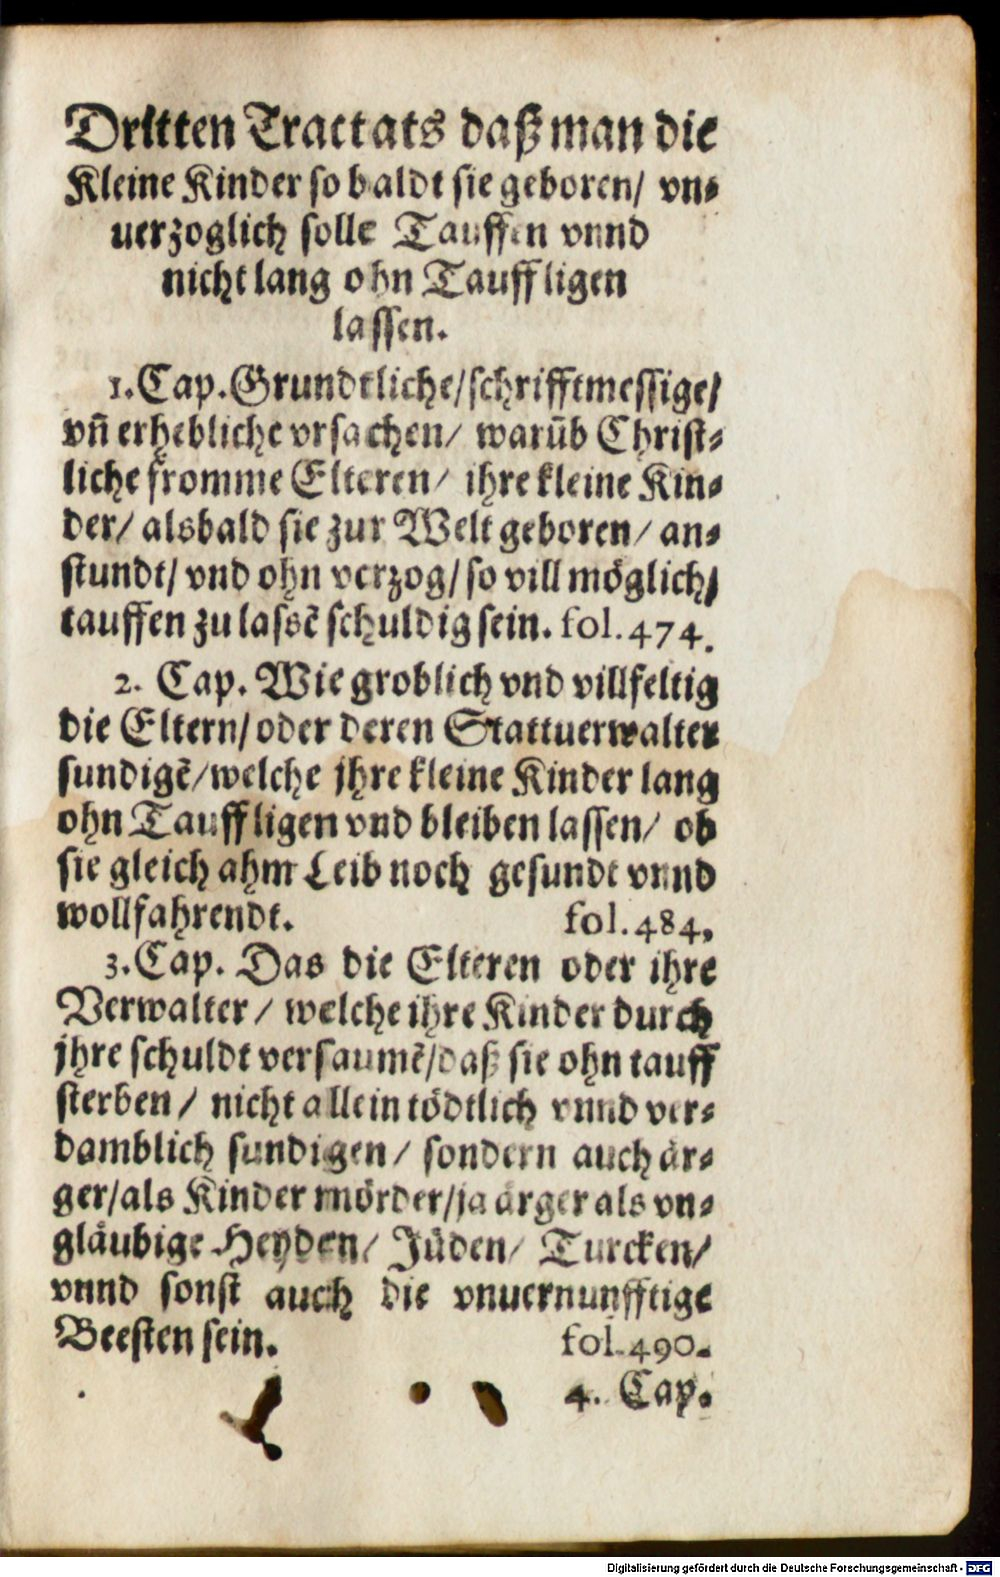 Dritten Tractats daß man die
Kleine Kinder so baldt sie geboren/ vn⸗
uerzoglich solle Tauffen vnnd
nicht lang ohn Tauff ligen
lassen.
1. Cap. Grundtliche/ schrifftmessige/
vñ erhebliche vrsachen/ warũb Christ⸗
liche fromme Elteren/ ihre kleine Kin⸗
der/ alsbald sie zur Welt geboren/ an⸗
stundt/ vnd ohn verzog/ so vill möglich/
tauffen zu lassẽ schuldig sein. fol. 474.
2. Cap. Wie groblich vnd villfeltig
die Eltern/ oder deren Stattuerwalter
sundigẽ/ welche jhre kleine Kinder lang
ohn Tauff ligen vnd bleiben lassen/ ob
sie gleich ahm Leib noch gesundt vnnd
wollfahrendt. fol. 484.
3. Cap. Das die Elteren oder ihre
Verwalter/ welche ihre Kinder durch
jhre schuldt versaumẽ/ daß sie ohn tauff
sterben/ nicht allein tödtlich vnnd ver⸗
damblich sundigen/ sondern auch är⸗
ger/ als Kinder mörder/ ja ärger als vn⸗
gläubige Heyden/ Jüden/ Turcken/
vnnd sonst auch die vnuernunfftige
Beesten sein. fol. 490.
4. Cap.
Digitalisierung gefördert durch die Deutsche Forschungsgemeinschaft - DFG